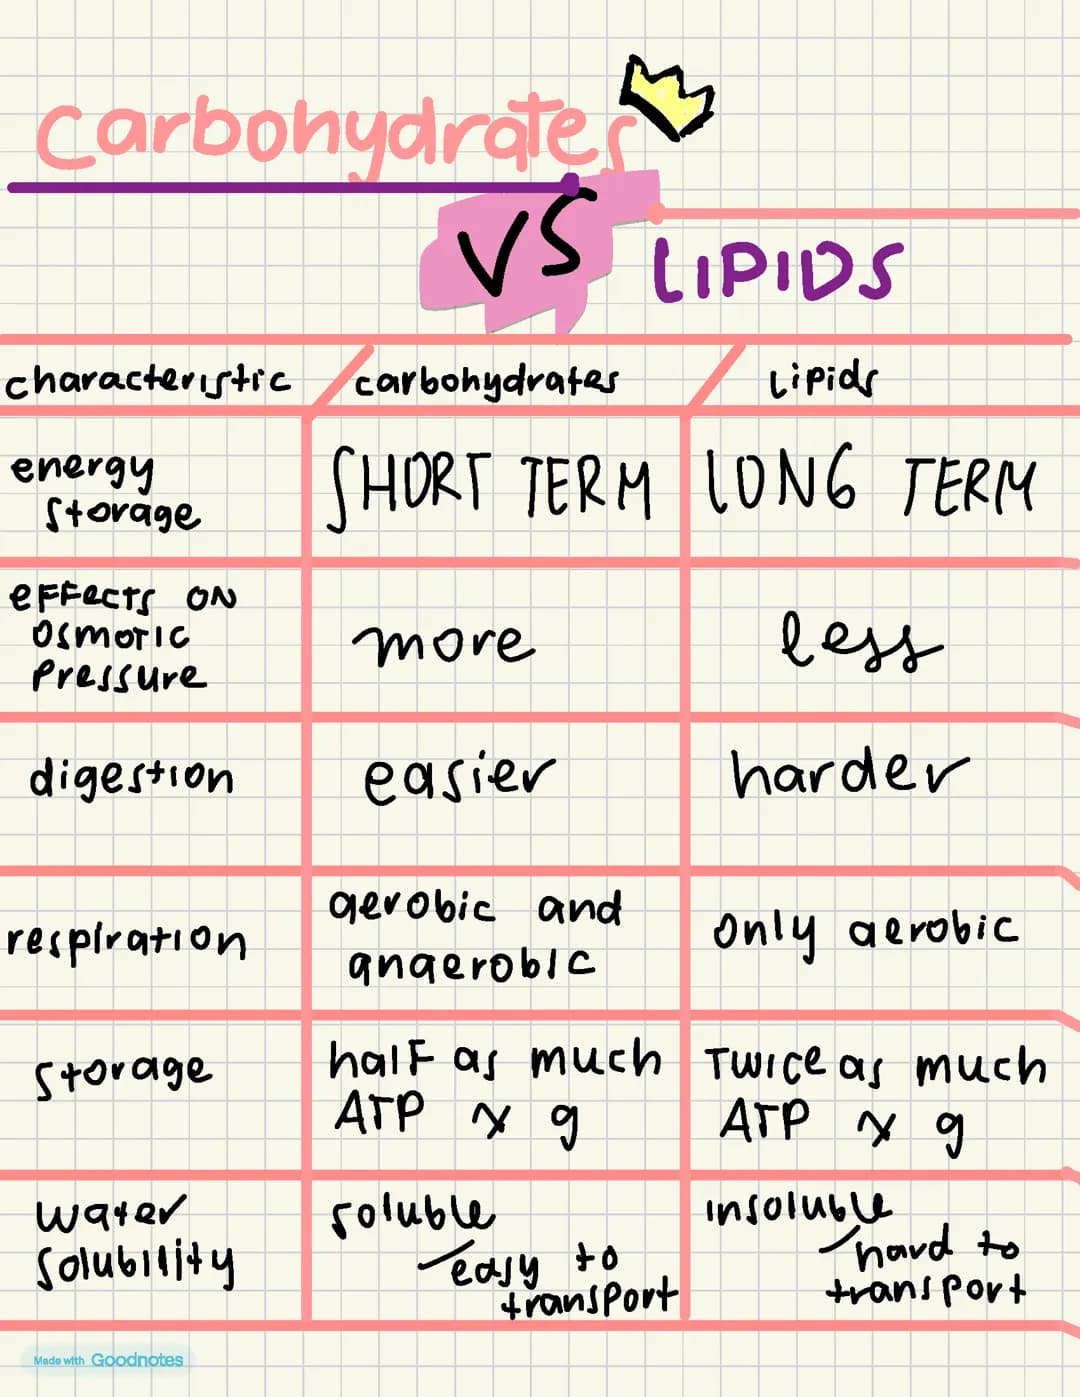 carbohydrates
VS
LIPIDS
characteristic
carbohydrates
Lipids
energy
storage
SHORT TERM
LONG TERM
effects on
osmotic
pressure
more
less
digestion
easier
harder
respiration
aerobic and
anaerobic
only aerobic
storage
half as much
ATP x g
Twice as much
ATP x g
water
solubility
soluble
easy to
transport
insoluble
hard to
transport
Made with Goodnotes